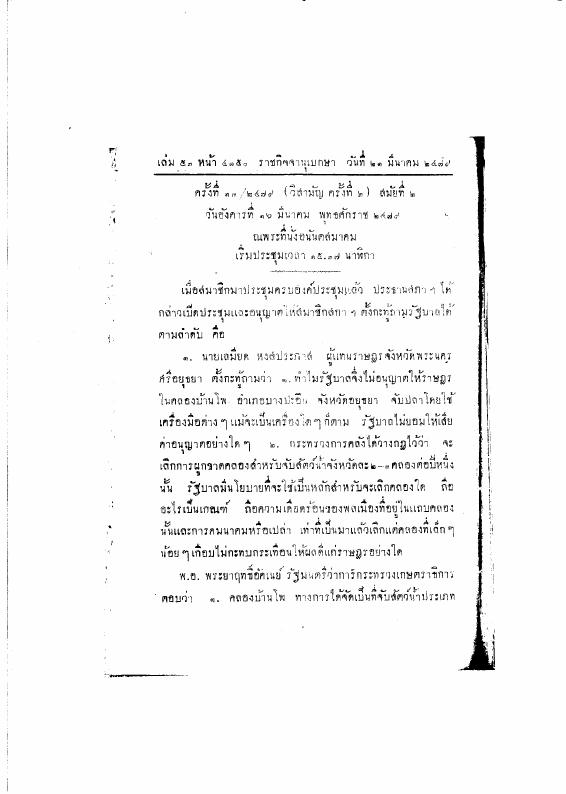 เล่ม ๕๓ หน้า ๔๑๕๐ ราชกิจจานุเบกษา วันที่ ๒๑ มีนาคม ๒๔๗๙
ครั้งที่ ๑๗/๒๔๗๙ (วิสามัญ ครั้งที่ ๒) สมัยที่ ๒
วันอังคารที่ ๑๖ มีนาคม พุทธศักราช ๒๔๗๙
ณพระที่นั่งอนันตสมาคม
เริ่มประชุมเวลา ๑๕.๓๗ นาฬิกา
เมื่อสมาชิกมาประชุมครบองค์ประชุมแล้ว ประธานสภา ฯ ได้
กล่าวเปิดประชุมและอนุญาตให้สมาชิกสภา ฯ ตั้งกะทู้ถามรัฐบาลได้
ตามลำดับ คือ
๑. นายเลมียด หงส์ประภาส ผู้แทนราษฎรจังหวัดพระนคร
ศรีอยุธยา ตั้งกะทู้ถามว่า ๑. ทำไมรัฐบาลจึงไม่อนุญาตให้ราษฎร
ในคลองบ้านโพ อำเภอบางปะอิน จังหวัดอยุธยา จับปลาโดยใช้
เครื่องมือต่าง ๆ แม้จะเป็นเครื่องใด ๆ ก็ตาม รัฐบาลไม่ยอมให้เสีย
ค่าอนุญาตอย่างใด ๆ ๒. กระทรวงการคลังได้วางกฎไว้ว่า จะ
เลิกการผูกขาดคลองสำหรับจับสัตว์น้ำจังหวัดละ ๒-๓ คลองต่อปีหนึ่ง
นั้น รัฐบาลมีนโยบายที่จะใช้เป็นหลักสำหรับจะเลิกคลองใด ถือ
อะไรเป็นเกณฑ์ ถือความเดือดร้อนของพลเมืองที่อยู่ในแถบคลอง
นั้นและการคมนาคมหรือเปล่า เท่าที่เป็นมาแล้วเลิกแต่คลองที่เล็ก ๆ
น้อย ๆ เกือบไม่กระทบกระเทือนให้ผลดีแก่ราษฎรอย่างใด
พ.อ. พระยาฤทธิ์อัคเนย์ รัฐมนตรีว่าการกระทรวงเกษตราธิการ
ตอบว่า ๑. คลองบ้านโพ ทางการได้จัดเป็นที่จับสัตว์น้ำประเภท